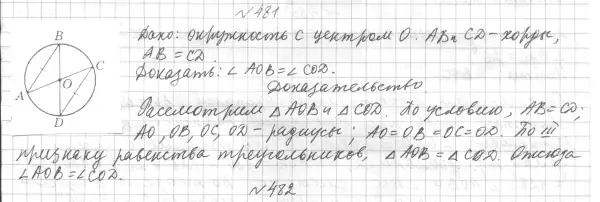 №481
B
C
O
A
D
Дано: окружность с центром O. AB и CD – хорды,
AB = CD.
Доказать: ∠AOB = ∠COD.
Доказательство
Рассмотрим △AOB и △COD. По условию, AB = CD;
AO, OB, OC, OD – радиусы; AO = OB = OC = OD. По III
признаку равенства треугольников, △AOB = △COD. Отсюда
∠AOB = ∠COD.
№482